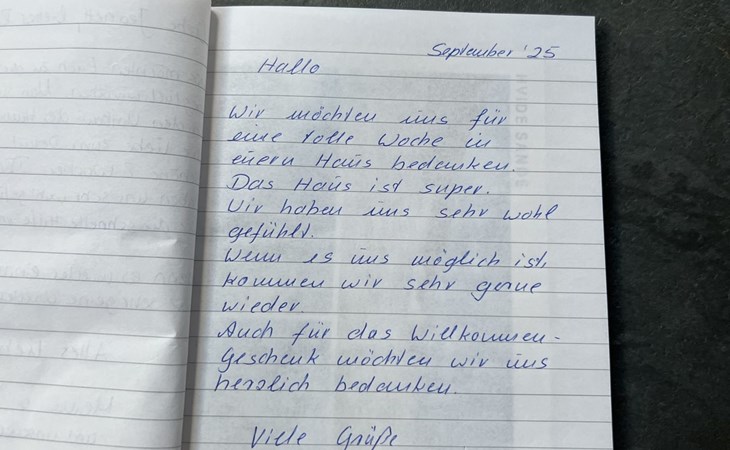 September '25
Hallo
Wir möchten uns für
eine tolle Woche in
euern Haus bedanken.
Das Haus ist super.
Wir haben uns sehr wohl
gefühlt.
Wenn es uns möglich ist,
kommen wir sehr gerne
wieder.
Auch für das Willkommen-
Geschenk möchten wir uns
herzlich bedanken.
Viele Grüße